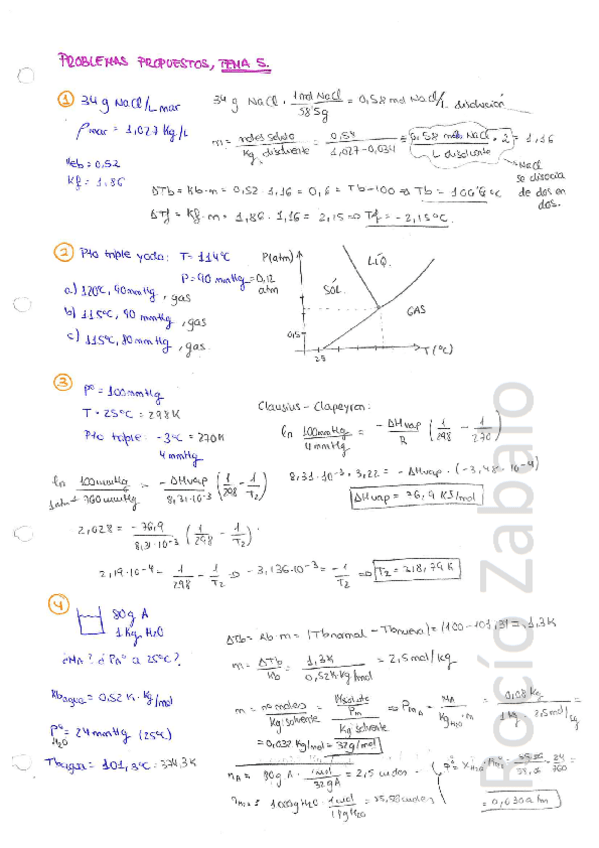 PROBLEMAS PROPUESTOS, TEMA 5.
① 34 g NaCl/L mar
ρmar = 1,027 kg/L
Keb = 0,52
Kf = 1,86
34 g NaCl · 1 mol NaCl / 58'5g = 0,58 mol NaCl/L disolución
m = moles soluto / Kg disolvente = 0,54 / 1,027 - 0,034 = 0,58 moles NaCl / L disolvente · 2 = 1,16
NaCl se disocia de dos en dos.
ΔTb = Kb·m = 0,52 · 1,16 = 0,6 = Tb - 100 ⇒ Tb = 100'6 ºC
ΔTf = Kf·m = 1,86 · 1,16 = 2,15 ⇒ Tf = -2,15ºC
② Pto triple yodo: T = 114ºC
P = 90 mmHg = 0,12 atm
a) 120ºC, 90mmHg, gas
b) 115ºC, 90 mmHg, gas
c) 115ºC, 80mmHg, gas
P(atm)
LÍQ.
SÓL.
GAS
T(ºC)
③ Pº = 100mmHg
T = 25ºC = 298K
Pto triple: -3ºC = 270K
4 mmHg
Clausius - Clapeyron:
ln 100mmHg / 4mmHg = - ΔHvap / R (1/298 - 1/270)
8,31·10⁻³ · 3,22 = - ΔHvap · (-3,48·10⁻⁴)
ΔHvap = 76,9 KJ/mol
ln 100mmHg / 760mmHg = - ΔHvap / 8,31·10⁻³ (1/298 - 1/T₂)
2,028 = -76,9 / 8,31·10⁻³ (1/298 - 1/T₂)
2,19·10⁻⁴ = 1/298 - 1/T₂ ⇒ -3,136·10⁻³ = -1/T₂ ⇒ T₂ = 318,79 K
④ 80g A
1 Kg H₂O
¿MA? ¿PAº a 25ºC?
Kb agua = 0,52 K·Kg/mol
PºH₂O = 24mmHg (25ºC)
Tb agua = 101,3ºC = 374,3K
ΔTb = Kb·m = |Tbnormal - Tbnueva| = (100 - 101,3) = 1,3K
m = ΔTb / Kb = 1,3K / 0,52K·Kg/mol = 2,5 mol/kg
= 0,032 Kg/mol = 32g/mol
nA = 80g A · 1mol / 32gA = 2,5 moles
= 0,030 atm
Rocío Zabalo